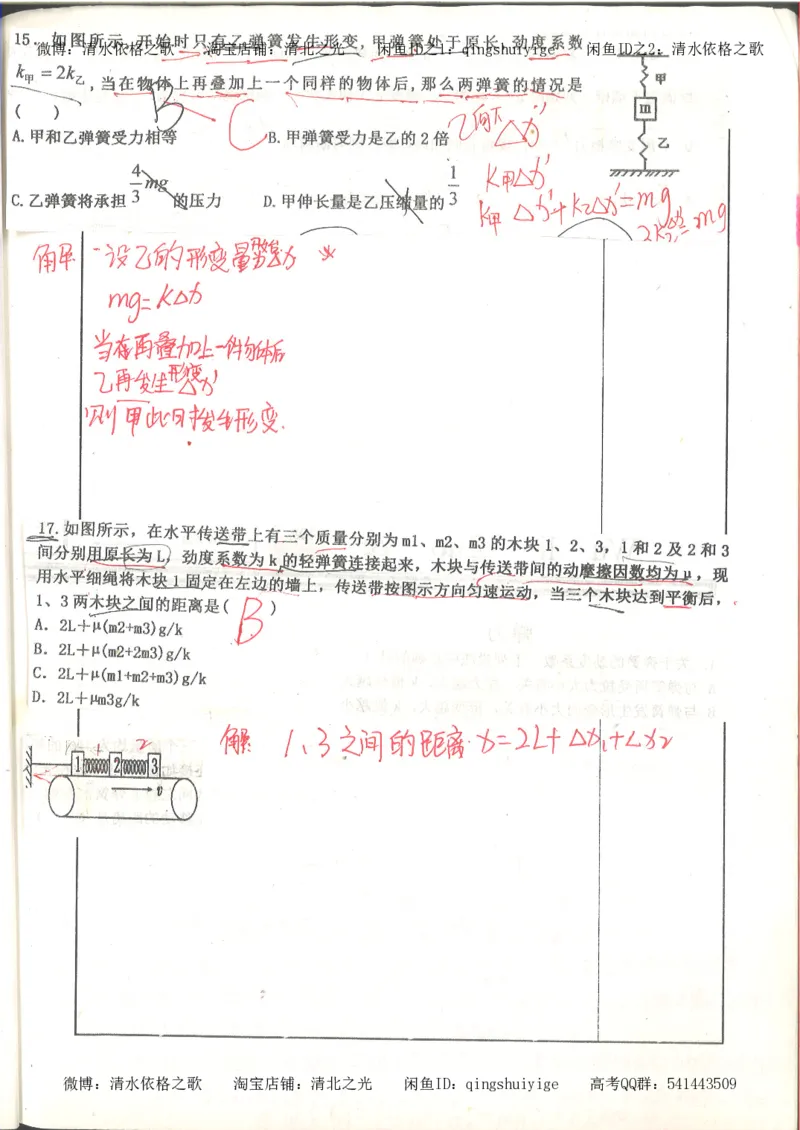 15. 如图所示,开始时只有乙弹簧发生形变,甲弹簧处于原长,劲度系数
微博：清水依格之歌 淘宝店铺：清北之光 闲鱼ID之1：qingshuiyige 闲鱼ID之2：清水依格之歌
k甲=2k乙,当在物体上再叠加上一个同样的物体后,那么两弹簧的情况是
( ) B C
A.甲和乙弹簧受力相等 B.甲弹簧受力是乙的2倍
C.乙弹簧将承担 4/3 mg 的压力 D.甲伸长量是乙压缩量的 1/3
甲
m
乙
乙向下Δx'
k甲Δx'
k甲Δx'+k乙Δx'=mg
解 设乙的形变量
mg=kΔx
当在再叠加上一件物体后
乙再发生形变Δx'
则甲此时发生形变.
17.如图所示，在水平传送带上有三个质量分别为m1、m2、m3的木块1、2、3，1和2及2和3
间分别用原长为L，劲度系数为k的轻弹簧连接起来，木块与传送带间的动摩擦因数均为μ，现
用水平细绳将木块1固定在左边的墙上，传送带按图示方向匀速运动，当三个木块达到平衡后，
1、3两木块之间的距离是( B )
A. 2L+μ(m2+m3)g/k
B. 2L+μ(m2+2m3)g/k
C. 2L+μ(m1+m2+m3)g/k
D. 2L+μm3g/k
解 1、3之间的距离x=2L+Δx1+Δx2
1 2
1 2 3
v
微博：清水依格之歌 淘宝店铺：清北之光 闲鱼ID：qingshuiyige 高考QQ群：541443509